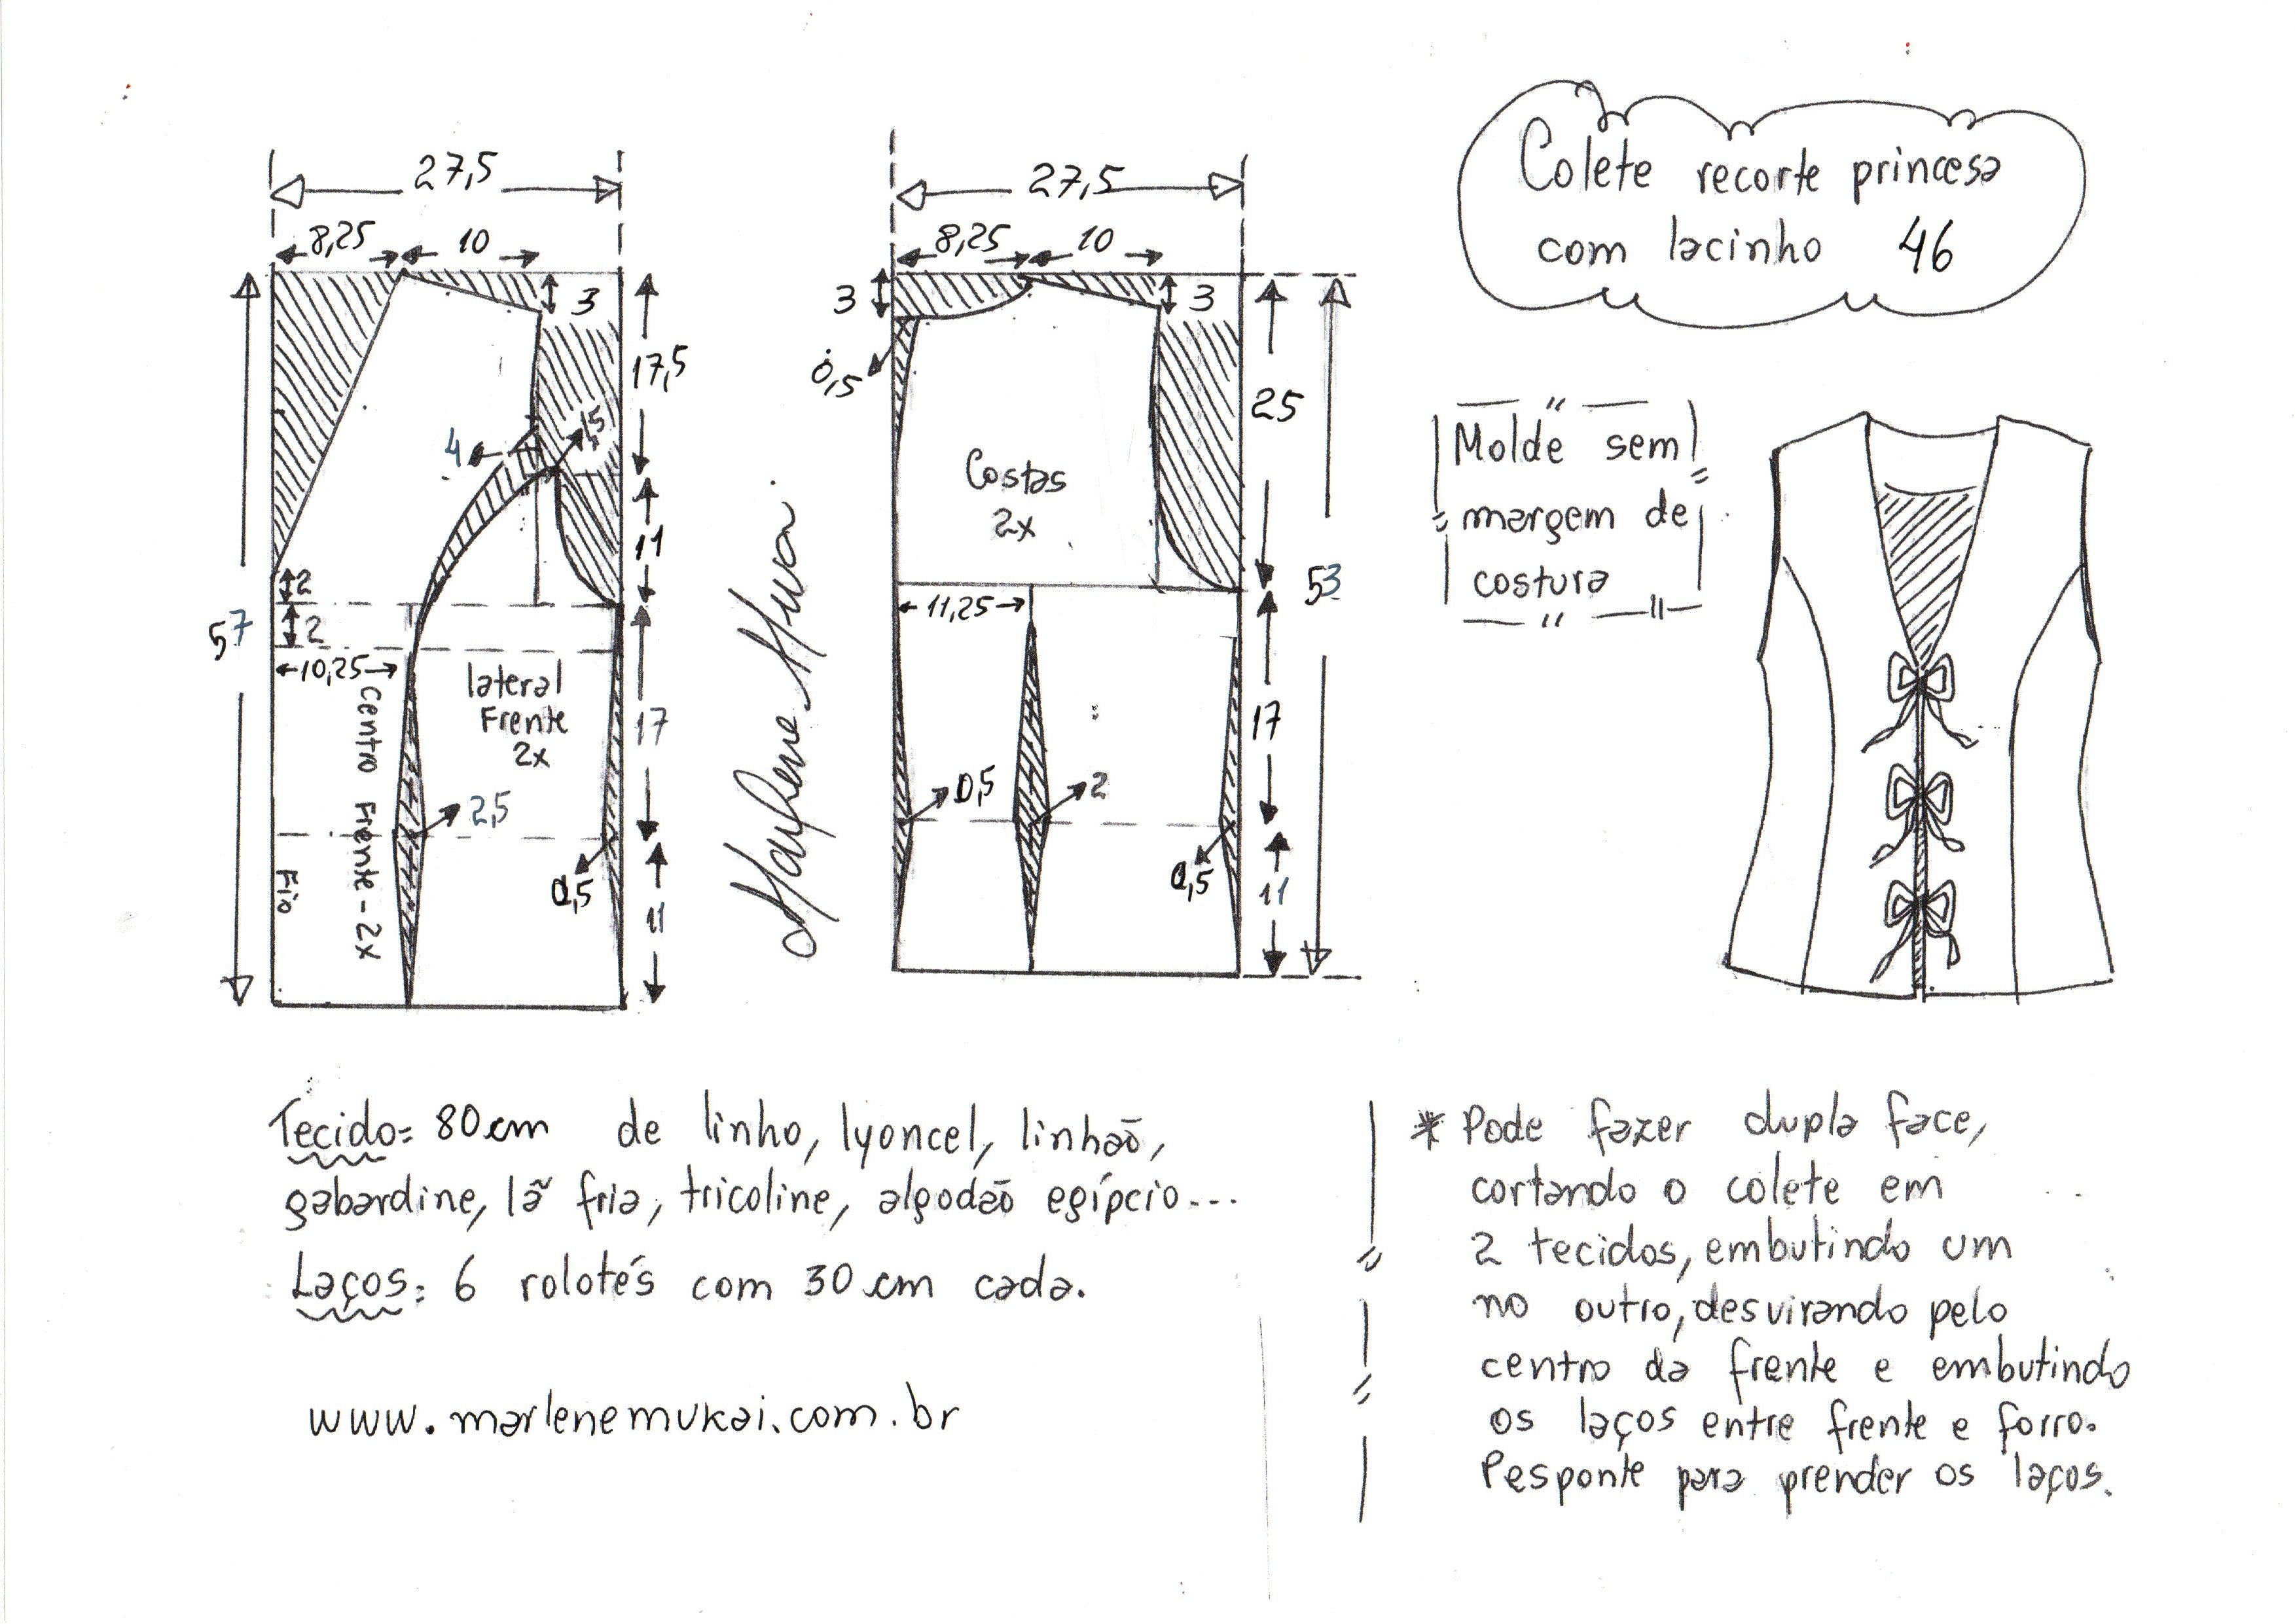 27,5
8,25 10
3
17,5
4
1,5
11
2
57
2
10,25
lateral
Frente
2x
Centro Frente - 2x
17
2,5
0,5
Fio
11
27,5
8,25 10
3
3
0,5
25
Costas
2x
53
11,25
17
0,5
2
0,5
11
Colete recorte princesa
com lacinho 46
Molde sem
margem de
costura
Tecido= 80cm de linho, lyoncel, linhão,
gabardine, lã fria, tricoline, algodão egípcio...
Laços: 6 rolotés com 30 cm cada.
www.marlenemukai.com.br
* Pode fazer dupla face,
cortando o colete em
2 tecidos, embutindo um
no outro, desvirando pelo
centro da frente e embutindo
os laços entre frente e forro.
Pesponte para prender os laços.